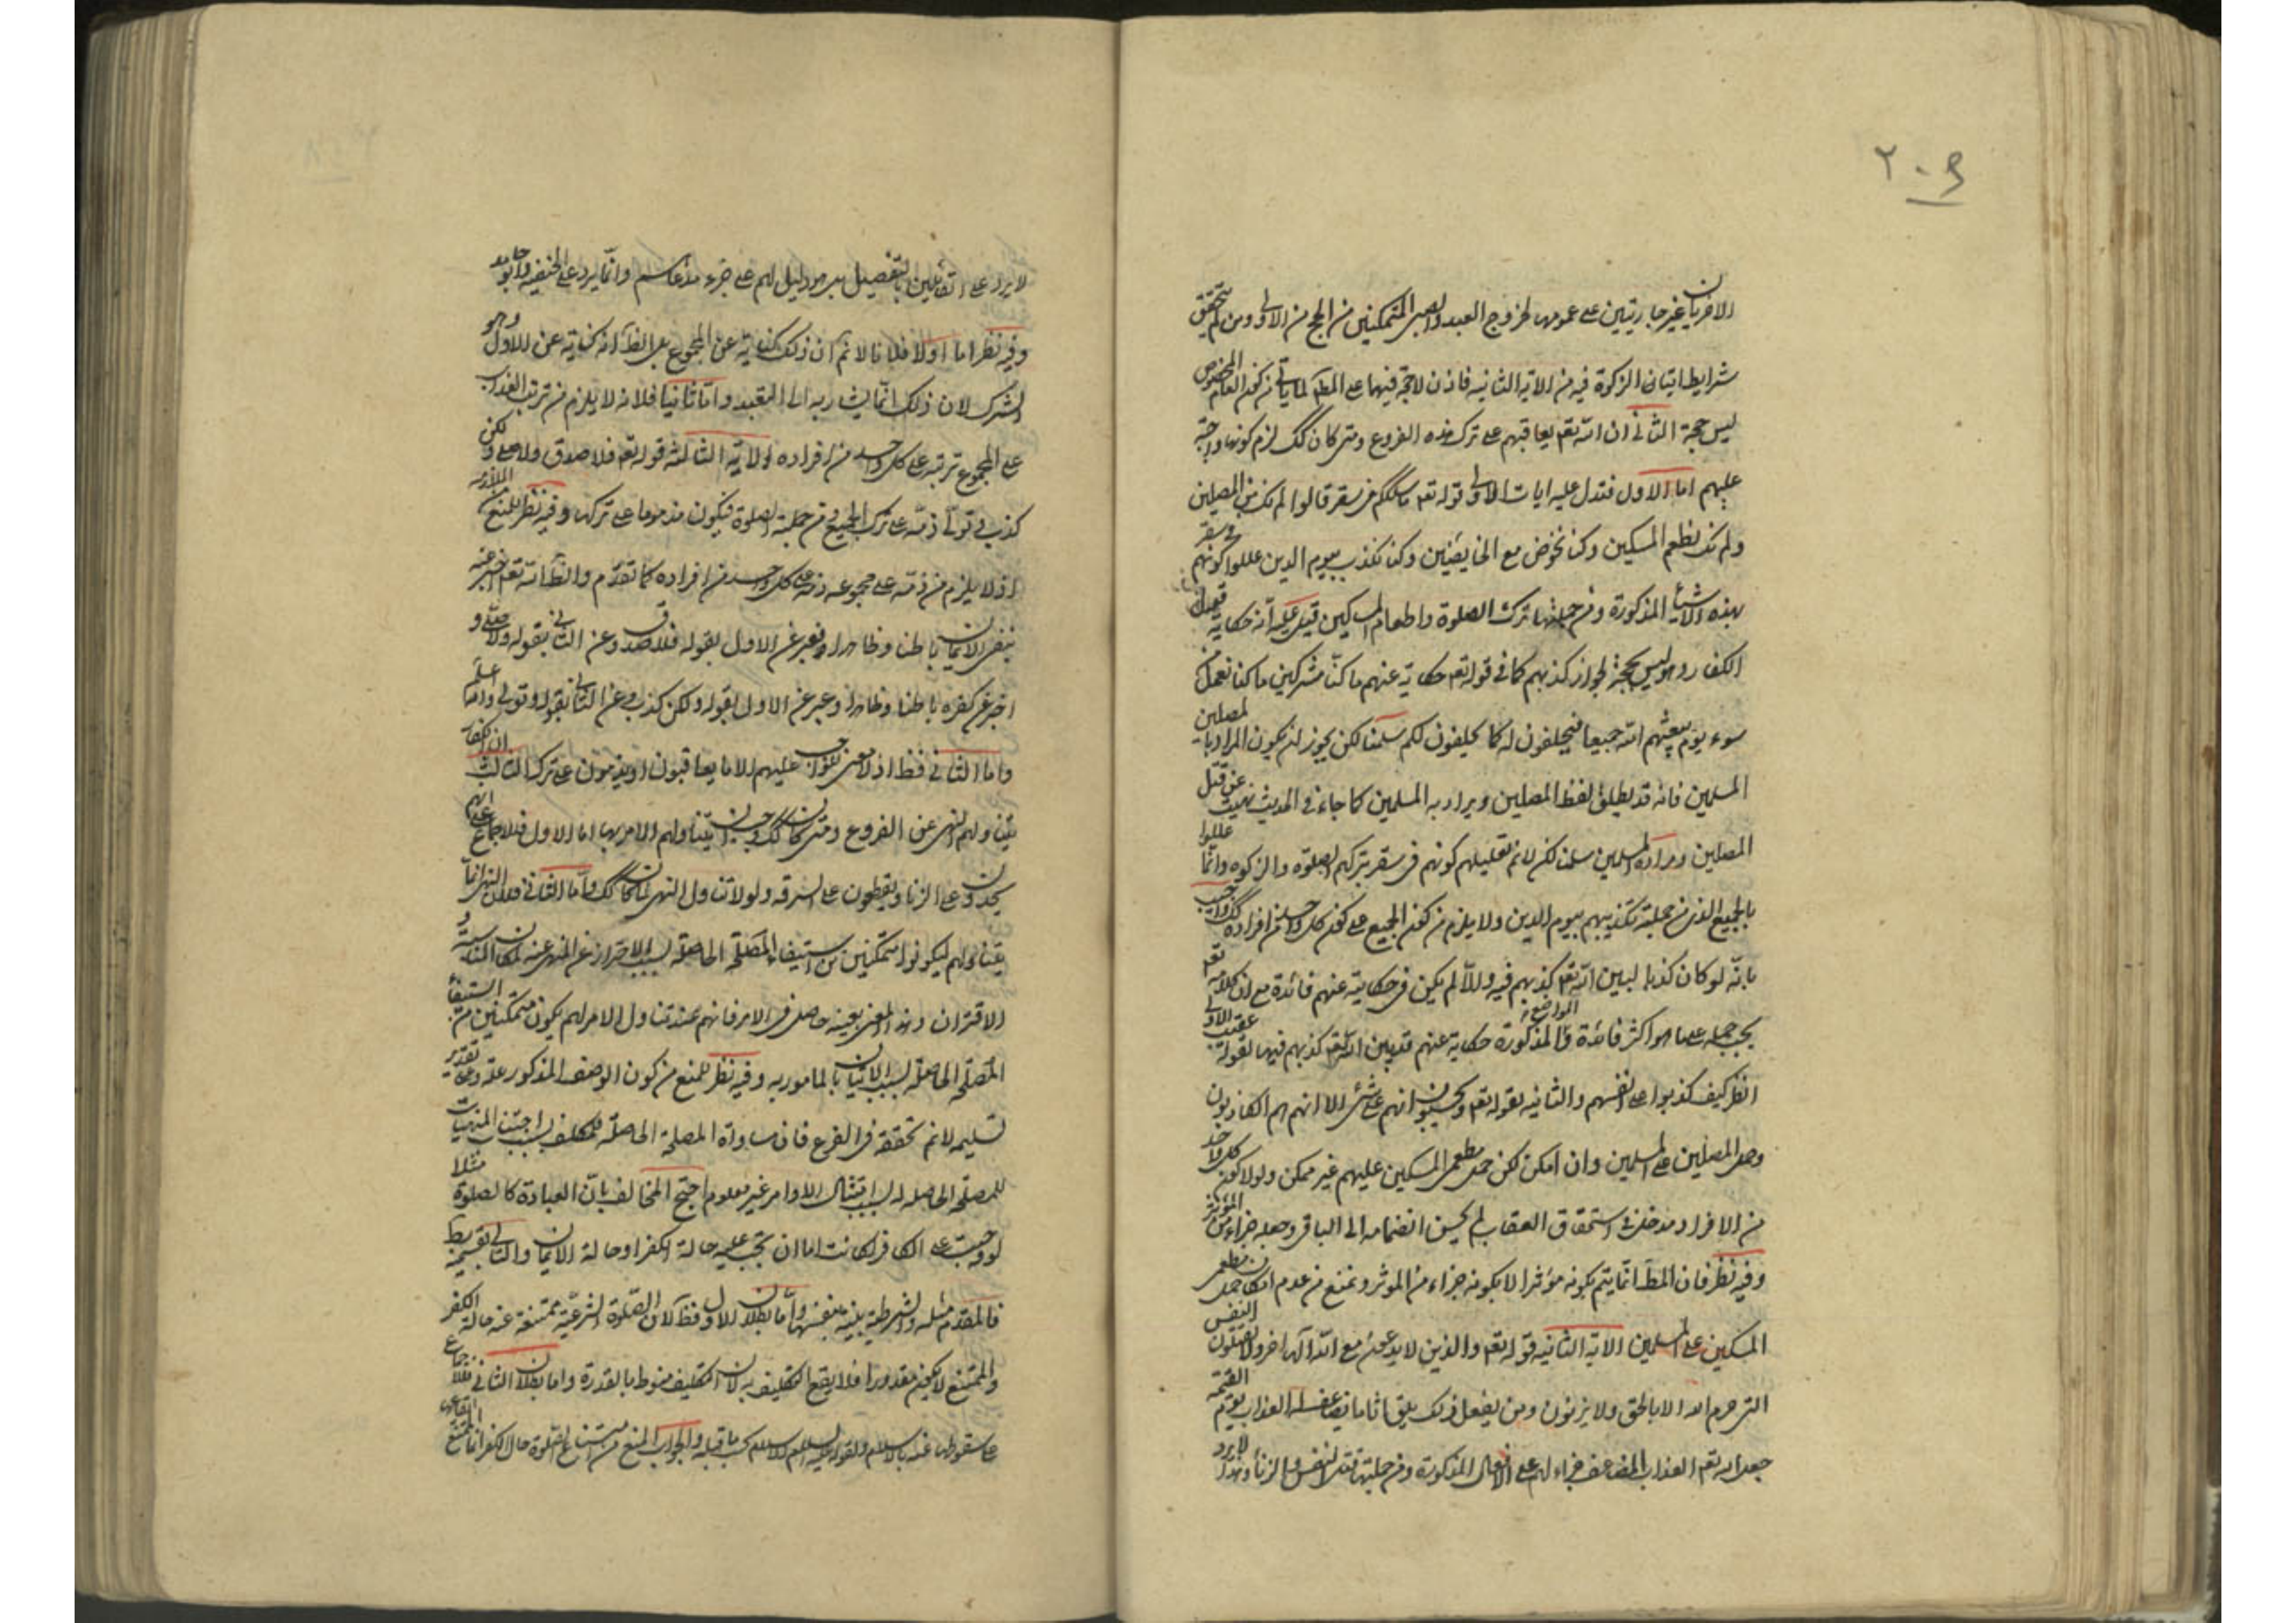 ٢٠٩
الاخريان غير جاريتين على عمومها لخروج العبد والصبى المتمكنين من الحج من الاولى ومن لم يتحقق
شرايط ايتان الزكوة فيه من الاية الثانيه فاذن لا حجة فيهما على المط لما ياتى من كون العام المخصوص
ليس حجة الثانى ان الله تعم يعاقبهم على ترك هذه الفروع ومتى كان كك لزم كونها واجبة
عليهم اما الاول فتدل عليه ايات الاولى قوله تعم ما سلككم فى سقر قالوا لم نك من المصلين
ولم نك نطعم المسكين وكنا نخوض مع الخايضين وكنا نكذب بيوم الدين عللوا كونهم فى سقر
بهذه الاشياء المذكورة ومن جملتها ترك الصلوة واطعام المسكين قيل عليه انه حكاية قول
الكفار وهو ليس بحجة لجواز كذبهم كما فى قوله تعم حكاية عنهم ما كنا مشركين ما كنا نعمل من
سوء يوم يبعثهم الله جميعا فيحلفون له كما يحلفون لكم سلمنا لكن يجوز ان يكون المراد بالمصلين
المسلمين فانه قد يطلق لفظ المصلين ويراد به المسلمين كما جاء فى الحديث نهيت عن قتل
المصلين ومراده المسلمين سلمنا لكن لا نم تعليلهم كونهم فى سقر بتركهم الصلوة والزكوه وانما عللوا
بالجميع الذى من جملة تكذيبهم بيوم الدين ولا يلزم من كون الجميع على كون كل واحد من افراده كك واجيب
بانه لو كان كذبا لبين الله تعم كذبهم فيه والا لم يكن فى حكايته عنهم فائدة مع ان كلامه تعم
يجب حمله على ما هو اكثر فائدة والمواضع المذكورة حكاية عنهم قد بين الله تعم كذبهم فيها لقوله عقيب الاولى
انظر كيف كذبوا على انفسهم والثانيه بقوله تعم ويحسبون انهم على شئ الا انهم هم الكاذبون
وحمل المصلين على المسلمين وان امكن لكن حمل مطعمى المسكين عليهم غير ممكن ولولا كون كل واحد
من الافراد مدخلا فى استحقاق العقاب لم يحسن انضمامه الى الباقى وجعله جزاء من المؤثر
وفيه نظر فان المط انما يتم بكونه مؤثرا لا بكونه جزاء من الموثر ونمنع من عدم امكان حمل مطعمى
المسكين على المسلمين الاية الثانيه قوله تعم والذين لا يدعون مع الله آلها اخر ولا يقتلون النفس
التى حرم الله الا بالحق ولا يزنون ومن يفعل ذلك يلق اثاما يضاعف له العذاب يوم القيمه
جعل الله تعم العذاب المضاعف جزاء لهم على الافعال المذكورة ومن جملتها قتل النفس والزنا وهذا لا يرد
لا يرد على القائلين بالتفصيل بل هو دليل لهم على جزء مدعاهم وانما يرد على الحنفيه وابو حامد
وفيه نظر اما اولا فلانا لا نم ان ذلك كناية عن المجموع بل الظ انه كناية عن الاول وهو
الشرك لان ذلك انما يشار به الى البعيد واما ثانيا فلانه لا يلزم من ترتب العذاب
على المجموع ترتبه على كل واحد من افراده الاية الثالثه قوله تعم فلا صدق ولا صلى ولكن
كذب وتولى ذمه على ترك الجميع ومن جملته الصلوة فيكون مذموما على تركها وفيه نظر للمنع من الملازمه
اذ لا يلزم من ذمه على مجموعه ذمه على كل واحد من افراده كما تقدم والظ انه تعم اخبر عنه
بنفى الايمان باطنا وظاهرا وعبر عن الاول بقوله فلا صدق وعن الثانى بقوله ولا صلى و
اخبر عن كفره باطنا وظاهرا وعبر عن الاول بقوله ولكن كذب وعن الثانى بقوله وتولى والله اعلم
واما الثانى فظ اذ لا معنى للوجوب عليهم الا ما يعاقبون او يذمون على تركه الثالث ان الكفار
يتناولهم النهى عن الفروع ومتى كان كك وجب ان يتناولهم الامر بها اما الاول فللاجماع على انهم
يحدون على الزنا ويقطعون على السرقه ولولا تناول النهى لما كان كك واما الثانى فلان النهى انما
يتناولهم ليكونوا متمكنين من استيفاء المصلحة الحاصلة بسبب الاحتراز عن المنهى عنه لمكان المناسبة و
الاقتران وهذا المعنى بعينه حاصل فى الامر فانهم عند تناول الامر لهم يكون متمكنين من استيفاء
المصلحة الحاصله بسبب الاتيان بالمامور به وفيه نظر للمنع من كون الوصف المذكور علة وعلى تقدير
تسليمه لا نم تحققه فى الفرع فان مساواة المصلحة الحاصلة للمكلف بسبب اجتناب المنهيات
للمصلحة الحاصله له بسبب امتثال الاوامر غير معلوم احتج المخالف بان العبادة كالصلوة مثلا
لو وجبت على الكافر لكانت اما ان تجب عليه حالة الكفر او حالة الايمان والتالى بقسميه بط
فالمقدم مثله والشرطية بينه بنفسها واما بطلان الاول فظ لان الصلوة الشرعية ممتنعة عنه حالة الكفر
والممتنع لا يكون مقدورا فلا يقع التكليف به لان التكليف منوط بالقدرة واما بطلان الثانى فللاجماع
على سقوطها عنه بالاسلام ولقوله عليه السلام الاسلام يجب ما قبله والجواب المنع من امتناع الصلوة حال الكفر انما يمتنع